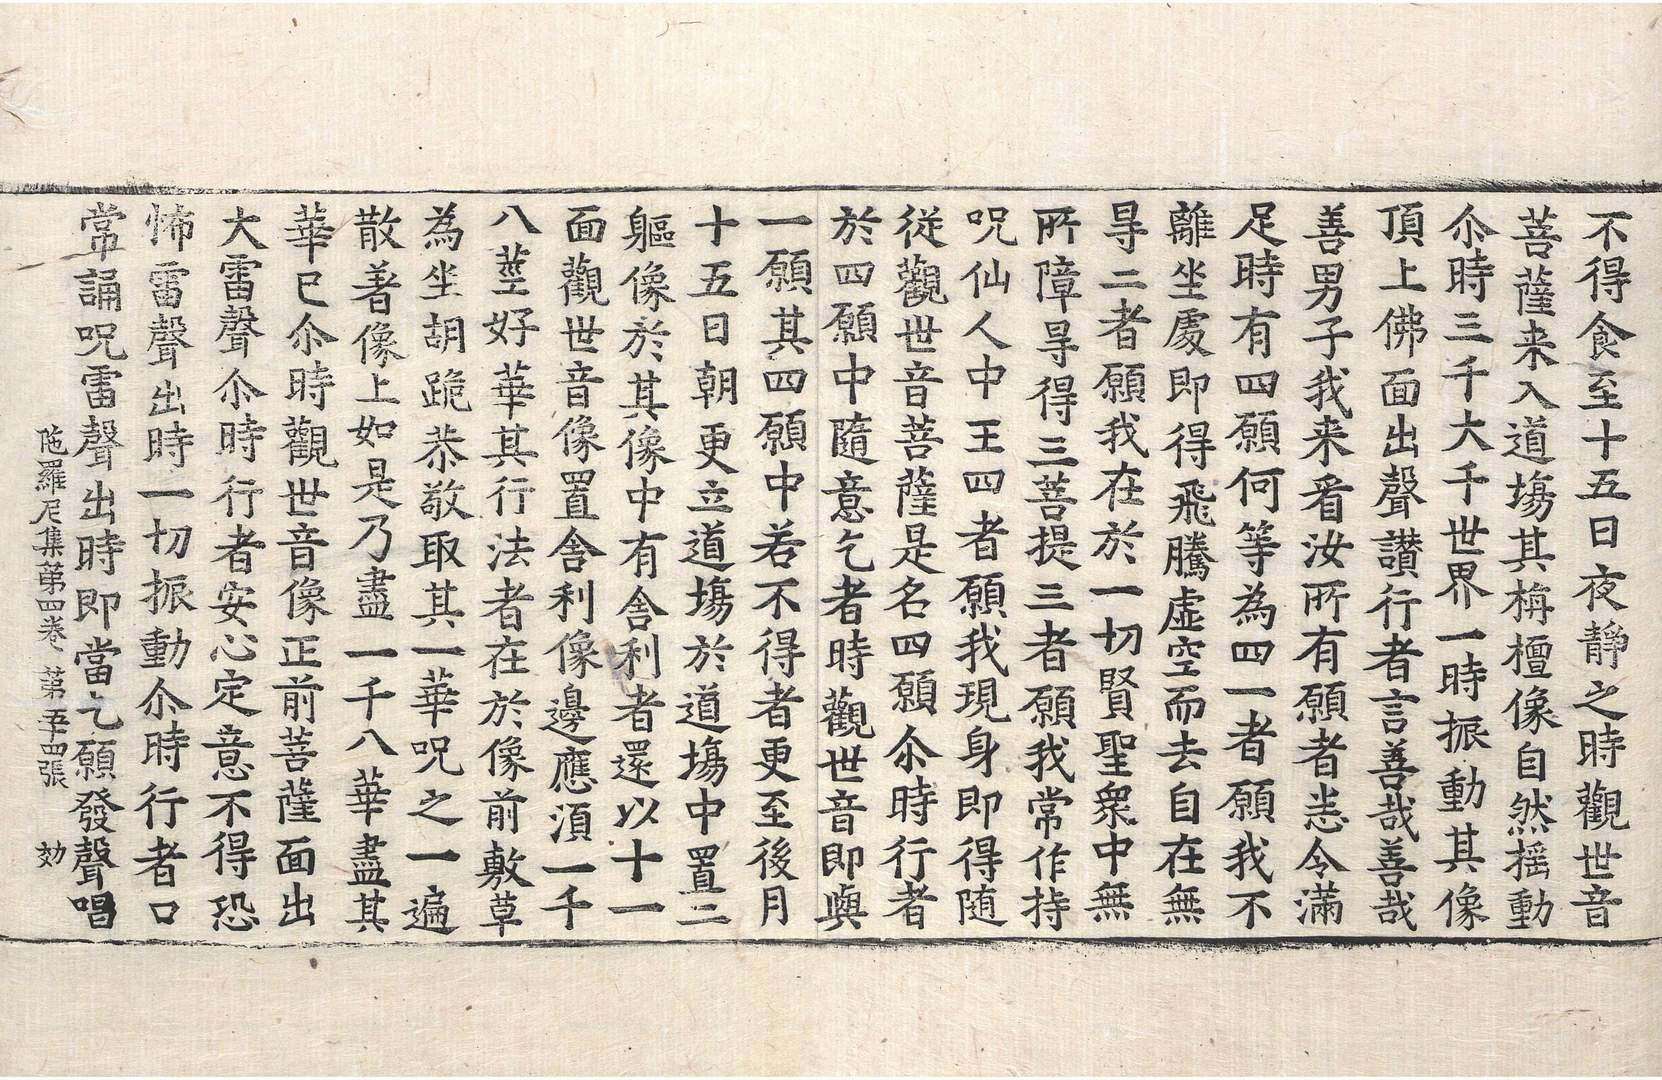 不得食至十五日夜靜之時觀世音
菩薩来入道塲其栴檀像自然摇動
尒時三千大千世界一時振動其像
頂上佛面出聲讃行者言善哉善哉
善男子我来看汝所有願者恙令滿
足時有四願何等為四一者願我不
離坐處即得飛騰虛空而去自在無
㝵二者願我在於一切賢聖衆中無
所障㝵得三菩提三者願我常作持
呪仙人中王四者願我現身即得随
従觀世音菩薩是名四願尒時行者
於四願中隨意乞者時觀世音即與
一願其四願中若不得者更至後月
十五日朝更立道塲於道塲中置二
軀像於其像中有舍利者還以十一
面觀世音像置舍利像邊應湏一千
八莖好華其行法者在於像前敷草
為坐胡跪恭敬取其一華呪之一遍
散著像上如是乃盡一千八華盡其
華已尒時觀世音像正前菩薩面出
大雷聲尒時行者安心定意不得恐
怖雷聲出時一切振動尒時行者口
常誦呪雷聲出時即當乞願發聲唱
陁羅尼集第四卷 第五四張 効